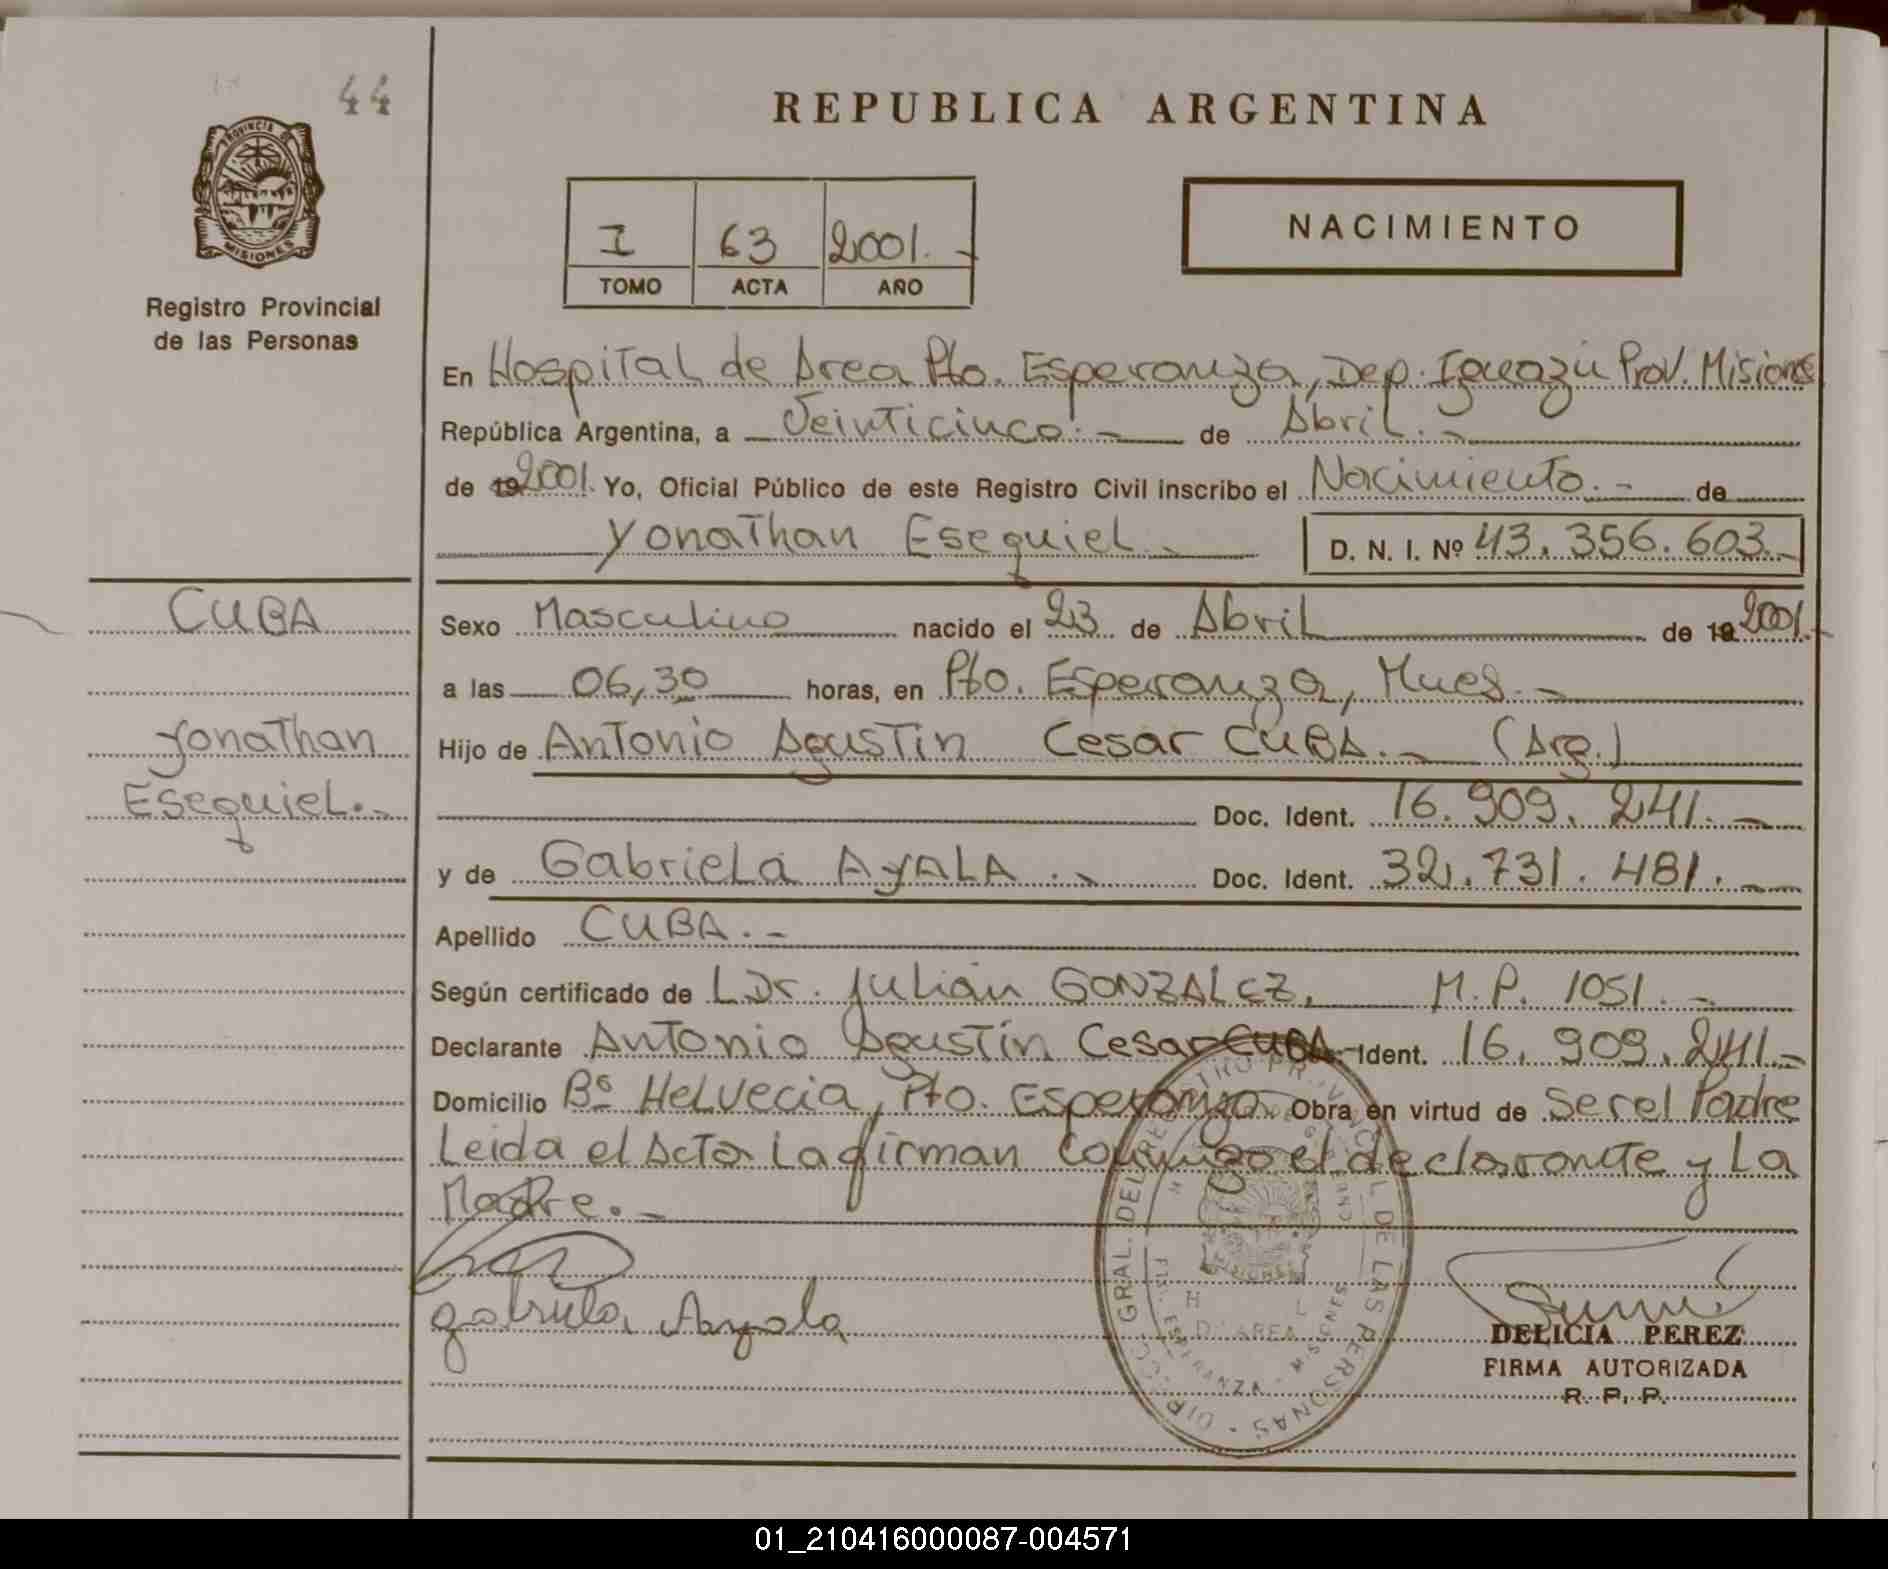 44
REPUBLICA ARGENTINA
PROVINCIA DE
MISIONES
Registro Provincial
de las Personas
I 63 2001.-
TOMO ACTA AÑO
NACIMIENTO
En Hospital de Area Pto. Esperanza, Dep. Iguazú Prov. Misiones
República Argentina, a Veinticinco.- de Abril.-
de 19 2001. Yo, Oficial Público de este Registro Civil inscribo el Nacimiento.- de
Yonathan Esequiel.- D. N. I. Nº 43.356.603.-
CUBA
Yonathan
Esequiel.-
Sexo Masculino nacido el 23 de Abril de 19 2001.-
a las 06,30 horas, en Pto. Esperanza, Mnes.-
Hijo de Antonio Agustin Cesar CUBA.- (Arg.)
Doc. Ident. 16.909.241.-
y de Gabriela AYALA.- Doc. Ident. 32.731.481.-
Apellido CUBA.-
Según certificado de Dr. Julián GONZALEZ, M.P. 1051.-
Declarante Antonio Agustín Cesar CUBA.- Ident. 16.909.241.-
Domicilio Bº Helvecia, Pto. Esperanza Obra en virtud de Ser el Padre
Leida el Acta La firman Conmigo el declarante y La
Madre.-
Gabriela Ayala
DIRECC. GRAL. DEL REGISTRO PROVINCIAL DE LAS PERSONAS
MISIONES
DELICIA PEREZ
FIRMA AUTORIZADA
R. P. P.
01_210416000087-004571